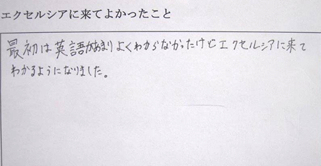 エクセルシアに来てよかったこと
最初は英語があまりよくわからなかったけどエクセルシアに来て
わかるようになりました。